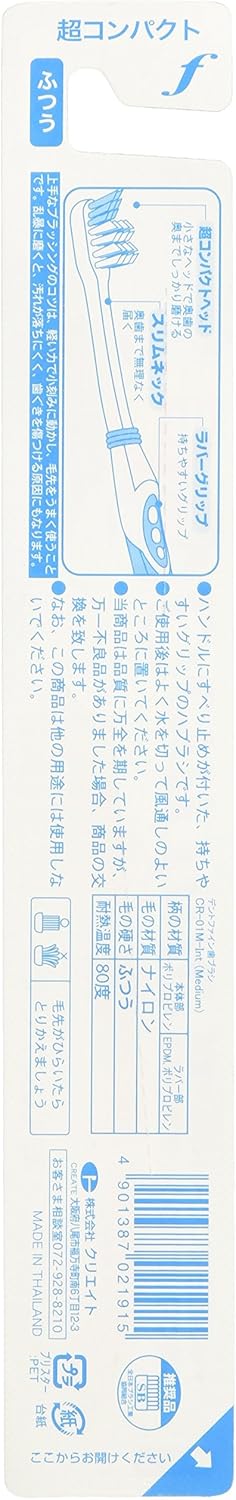 超コンパクト
f
ふつう
超コンパクトヘッド
小さなヘッドで奥歯の
奥までしっかり磨ける
スリムネック
奥歯まで無理なく
届く
ラバーグリップ
持ちやすいグリップ
上手なブラッシングのコツは、軽い力で小刻みに動かし、毛先をうまく使うこと
です。乱暴に磨くと、汚れが落ちにくく、歯ぐきを傷つける原因にもなります。
●ハンドルにすべり止めが付いた、持ちや
すいグリップのハブラシです。
●ご使用後はよく水を切って風通しのよい
ところに置いてください。
●当商品は品質に万全を期していますが、
万一不良品がありました場合、商品の交
換を致します。
●なお、この商品は他の用途には使用しな
いでください。
デントファイン歯ブラシ
CR-01M-Int (Medium)
柄の材質 本体部 ポリプロピレン ラバー部 EPDM, ポリプロピレン
毛の材質 ナイロン
毛の硬さ ふつう
耐熱温度 80度
毛先がひらいたら
とりかえましょう
株式会社 クリエイト
CREATE 大阪府八尾市福万寺町南6丁目12-3
お客さま相談室 072-928-8210
MADE IN THAILAND
4 901387 021915
プラ
ブリスター
:PET
紙
台紙
推奨品
SB
全日本ブラシ工業
協同組合
ここからお開けください